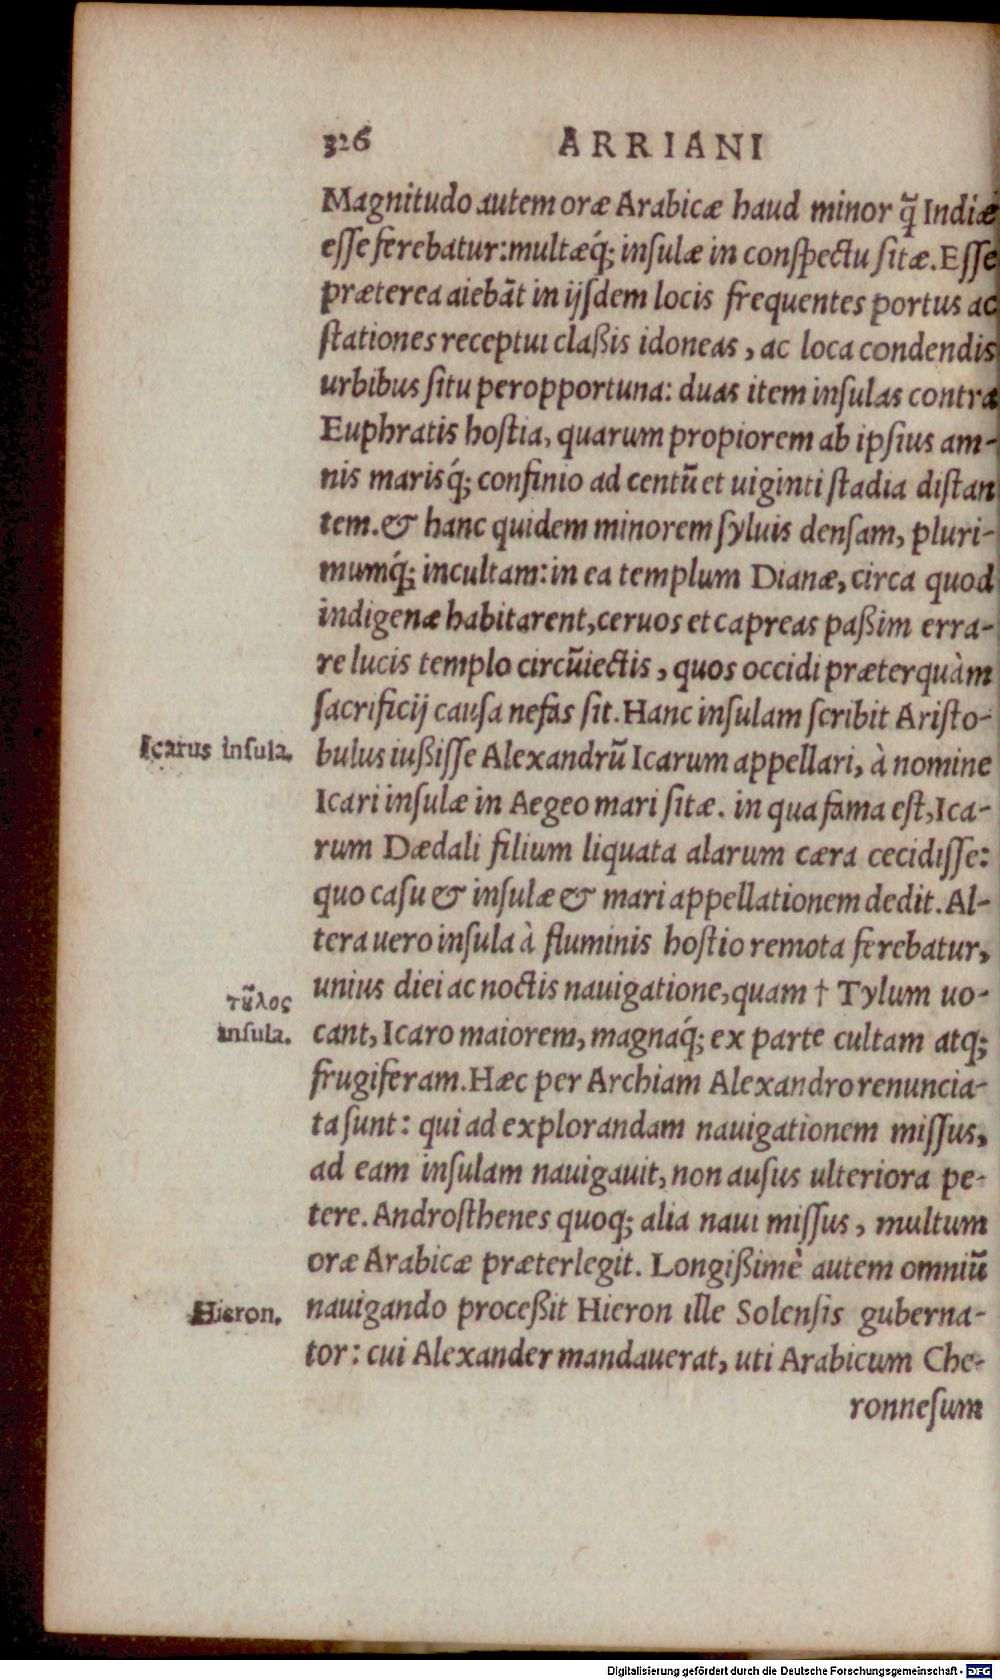 326 ARRIANI
Magnitudo autem oræ Arabicæ haud minor q̃ Indiæ
esse ferebatur: multæq́; insulæ in conspectu sitæ. Esse
præterea aiebãt in ijsdem locis frequentes portus ac
stationes receptui claßis idoneas, ac loca condendis
urbibus situ peropportuna: duas item insulas contra
Euphratis hostia, quarum propiorem ab ipsius am-
nis marisq́; confinio ad centũ et uiginti stadia distan
tem. & hanc quidem minorem syluis densam, pluri-
mumq́; incultam: in ea templum Dianæ, circa quod
indigenæ habitarent, ceruos et capreas paßim erra-
re lucis templo circũiectis, quos occidi præterquàm
sacrificij causa nefas sit. Hanc insulam scribit Aristo-
Icarus insula. bulus iußisse Alexandrũ Icarum appellari, à nomine
Icari insulæ in Aegeo mari sitæ. in qua fama est, Ica-
rum Dædali filium liquata alarum cæra cecidisse:
quo casu & insulæ & mari appellationem dedit. Al-
tera uero insula à fluminis hostio remota ferebatur,
τῦλος unius diei ac noctis nauigatione, quam † Tylum uo-
insula. cant, Icaro maiorem, magnaq́; ex parte cultam atq;
frugiferam. Hæc per Archiam Alexandro renuncia-
ta sunt: qui ad explorandam nauigationem missus,
ad eam insulam nauigauit, non ausus ulteriora pe-
tere. Androsthenes quoq; alia naui missus, multum
oræ Arabicæ præterlegit. Longißimè autem omniũ
Hieron. nauigando proceßit Hieron ille Solensis guberna-
tor: cui Alexander mandauerat, uti Arabicum Che-
ronnesum
Digitalisierung gefördert durch die Deutsche Forschungsgemeinschaft - DFG